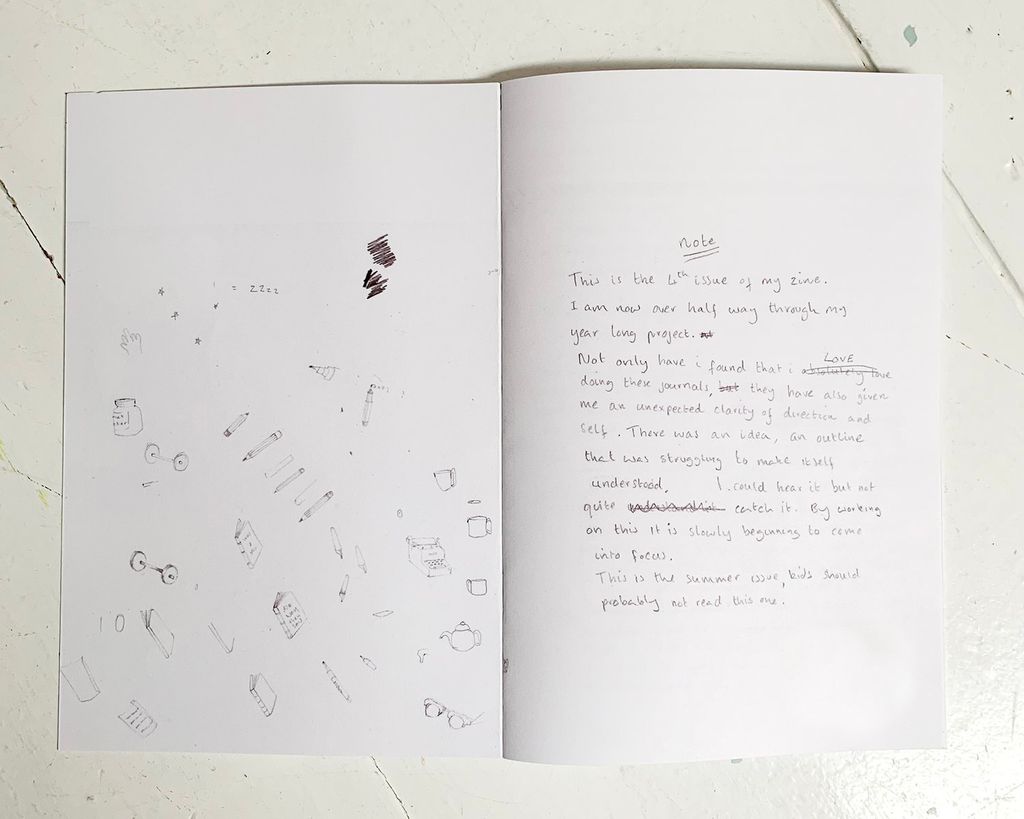 = zzzz
note
This is the 4th issue of my zine.
I am now over half way through my
year long project.
LOVE
Not only have i found that i absolutely love
doing these journals, but they have also given
me an unexpected clarity of direction and
self. There was an idea, an outline
that was struggling to make itself
understood, I could hear it but not
quite catch it. By working
on this it is slowly beginning to come
into focus.
This is the summer issue, kids should
probably not read this one.